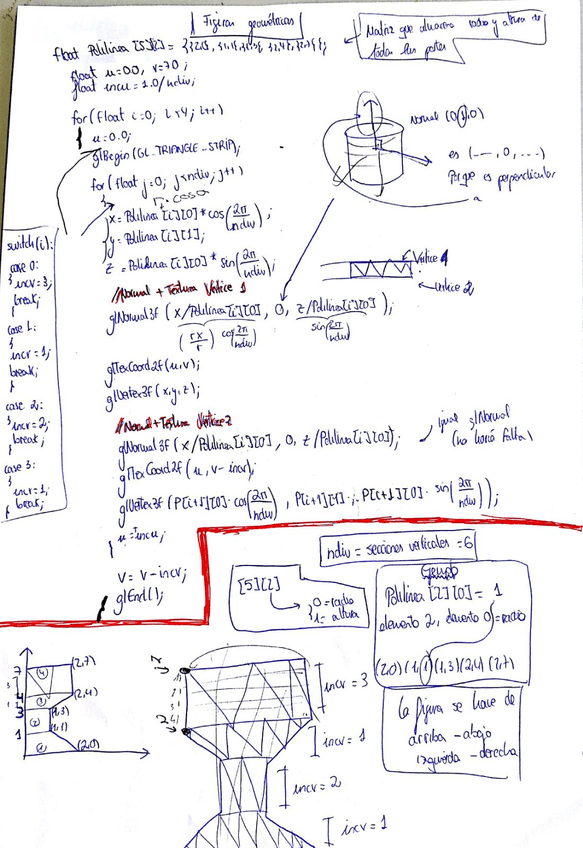 Figuras geométricas
float Polilinea [5][2] = {{2,7}, {2,4}, {1,3}, {1,1}, {2,0}};
Matriz que almacena radio y altura de
todas las partes
float u=0.0, v=7.0;
float incu = 1.0/ndiv;
for(float i=0; i<4; i++)
{
u=0.0;
glBegin(GL_TRIANGLE_STRIP);
for(float j=0; j<ndiv; j++)
{
r·cosα
x=Polilinea[i][0]*cos(2π/ndiv);
y=Polilinea[i][1];
z=Polilinea[i][0]*sin(2π/ndiv);
//Normal + Textura Vertice 1
glNormal3f (x/Polilinea[i][0], 0, z/Polilinea[i][0]);
(rx/r) cos(2π/ndiv)
sin(2π/ndiv)
glTexCoord2f(u,v);
glVertex3f(x,y,z);
//Normal+Textura Vertice 2
glNormal3f (x/Polilinea[i][0], 0, z/Polilinea[i][0]);
igual glNormal
(no haría falta)
glTexCoord2f(u, v-incv);
glVertex3f(P[i+1][0]·cos(2π/ndiv), P[i+1][1], P[i+1][0]·sin(2π/ndiv));
u+=incu;
}
v = v-incv;
glEnd();
}
switch(i):
case 0:
{ incv=3;
break;
}
case 1:
{
incv=1;
break;
}
case 2:
{ incv=2;
break;
}
case 3:
{
incv=1;
break;
Normal (0,1,0)
es (--, 0, ...)
Porque es perpendicular
a
Vertice 1
Vertice 2
ndiv = secciones verticales = 6
[5][2]
0=radio
1=altura
Ejemplo
Polilinea [2][0] = 1
elemento 2, elemento 0=radio
(2,0) (1,1) (1,3) (2,4) (2,7)
la figura se hace de
arriba - abajo
izquierda - derecha
7
4
3
1
(2,7)
(2,4)
(1,3)
(1,1)
(2,0)
incv = 3
incv = 1
incv = 2
incv = 1